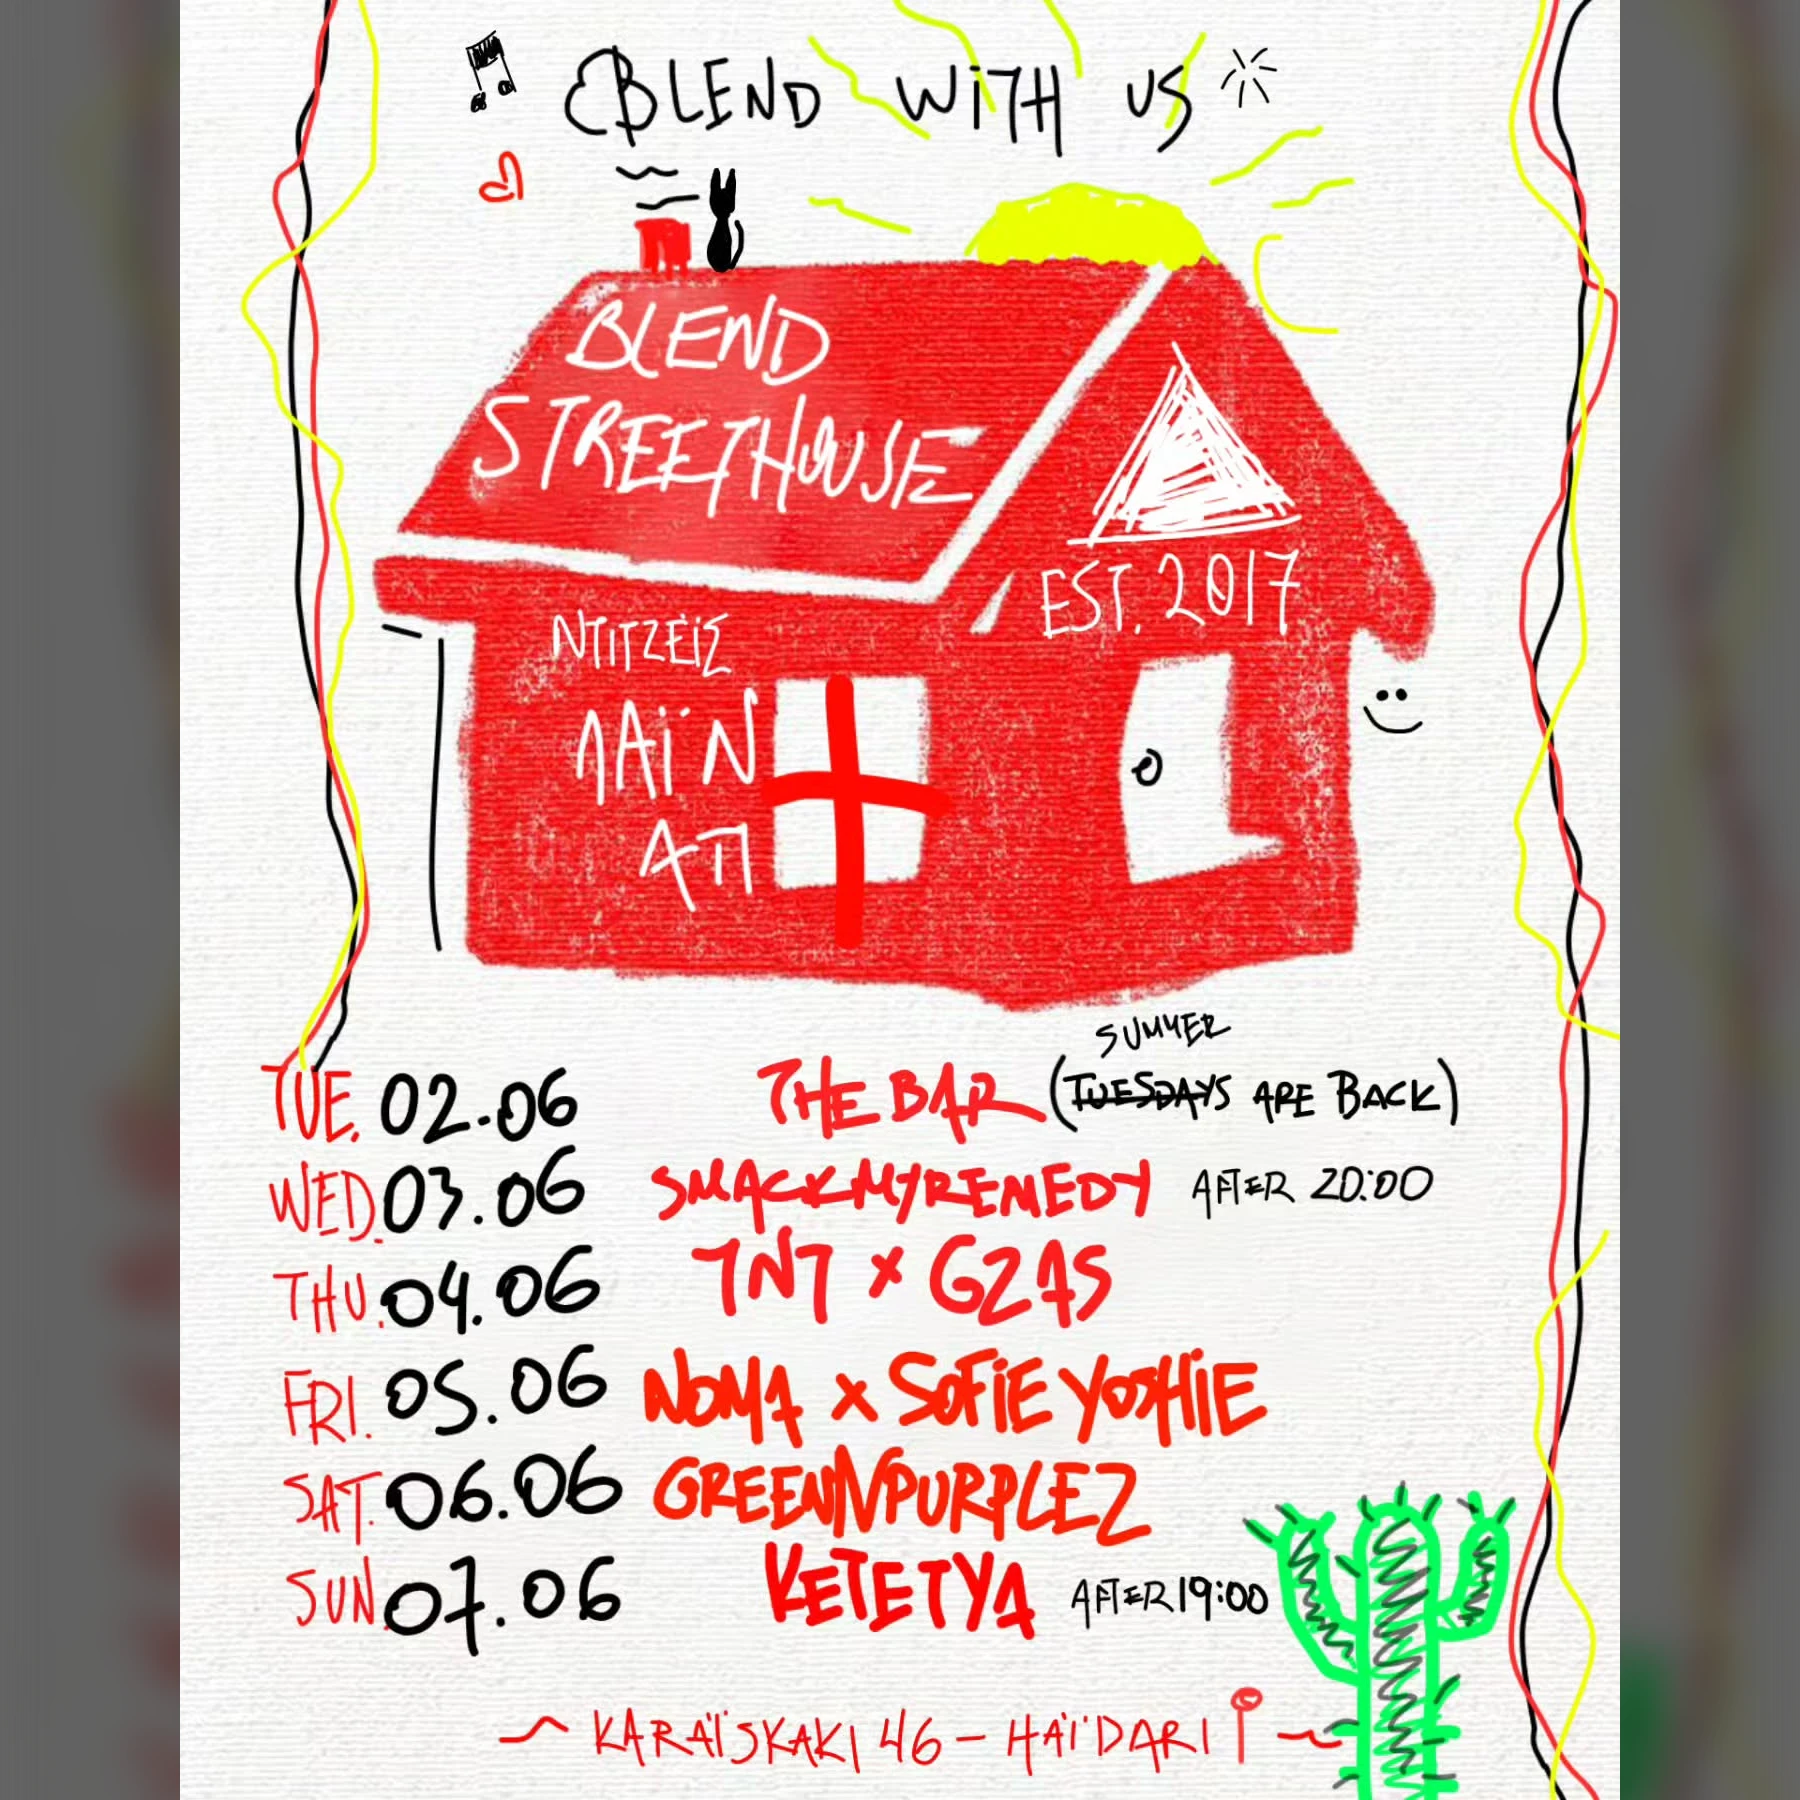 BLEND WITH US
BLEND
STREETHOUSE
EST. 2017
ΝΤΙΤΖΕΪΣ
ΛΑΪΝ
ΑΠ
SUMMER
TUE. 02.06 THE BAR (TUESDAYS ARE BACK)
WED. 03.06 SMACKMYREMEDY AFTER 20:00
THU. 04.06 TNT x G2AS
FRI. 05.06 NOMA x SOFIE YOSHIE
SAT. 06.06 GREENNPURPLEZ
SUN. 07.06 KETETYA AFTER 19:00
~ KARAÏSKAKI 46 – HAÏDARI ~